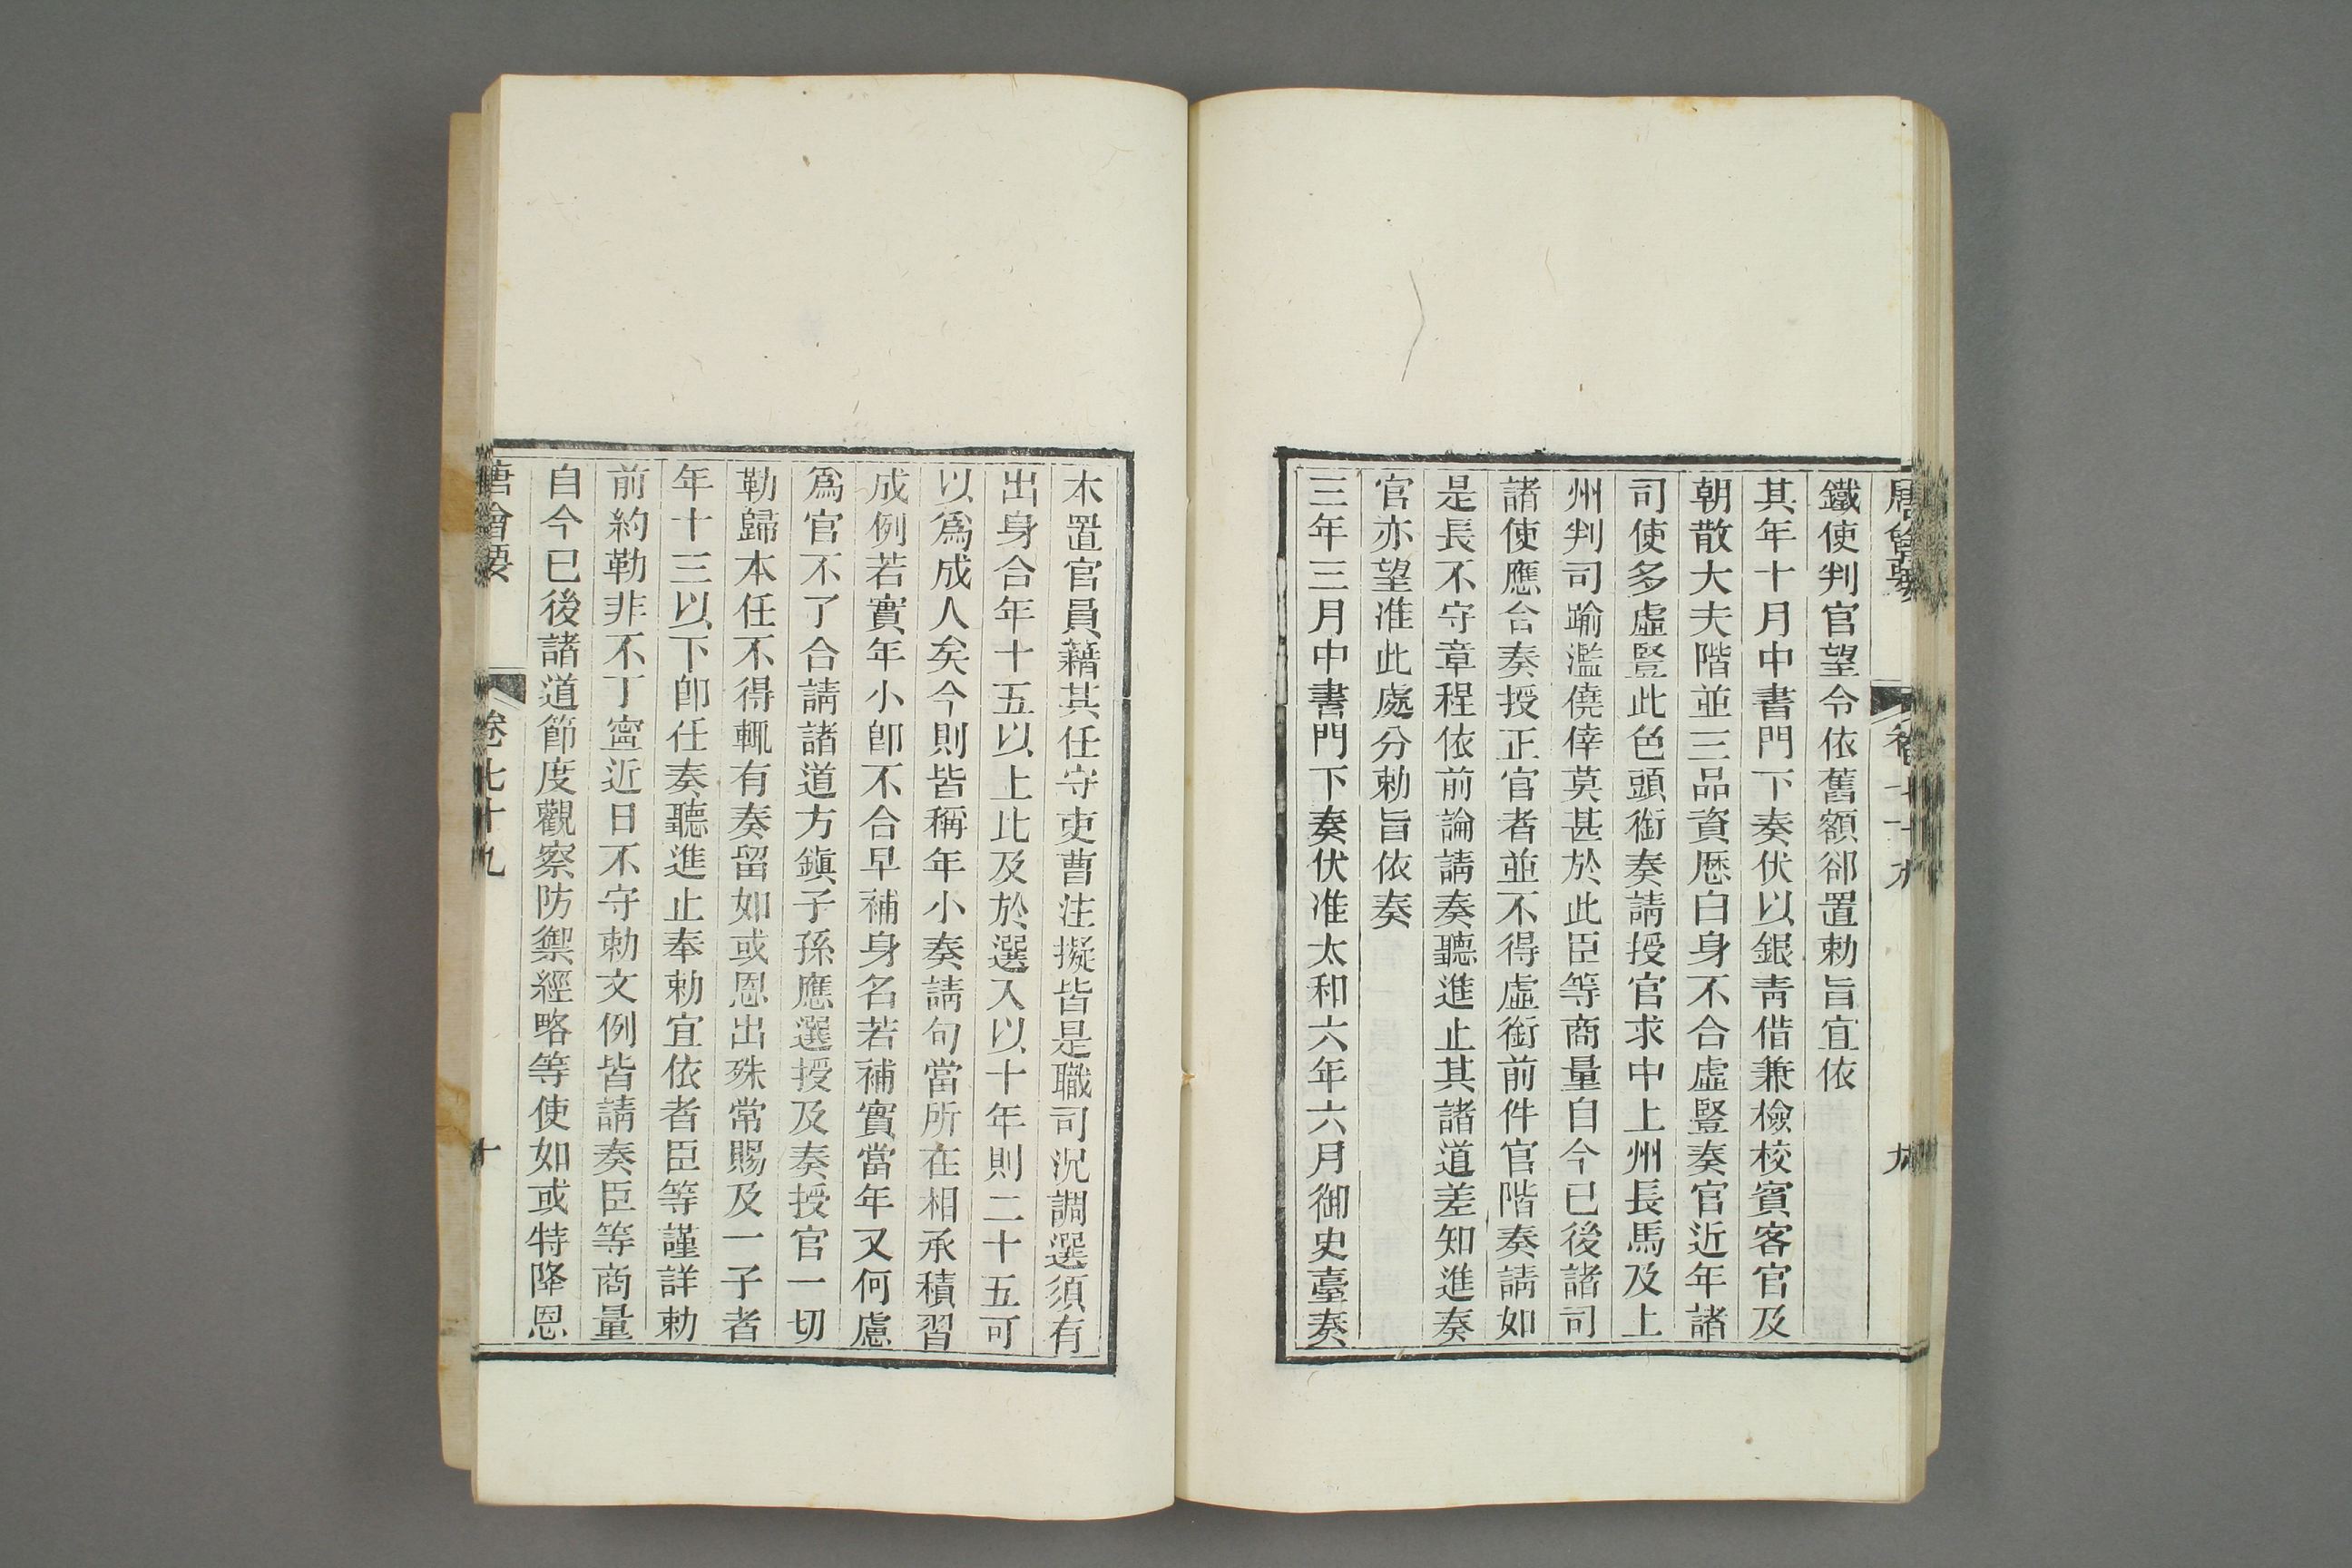 唐會要 卷七十九 九
鐵使判官望令依舊額卻置勅旨宜依
其年十月中書門下奏伏以銀青借兼檢校賓客官及
朝散大夫階並三品資歷白身不合虛豎奏官近年諸
司使多虛豎此色頭銜奏請授官求中上州長馬及上
州判司踰濫僥倖莫甚於此臣等商量自今已後諸司
諸使應合奏授正官者並不得虛銜前件官階奏請如
是長不守章程依前論請奏聽進止其諸道差知進奏
官亦望准此處分勅旨依奏
三年三月中書門下奏伏准太和六年六月御史臺奏
木置官員藉其任守吏曹注擬皆是職司況調選須有
出身合年十五以上比及於選入以十年則二十五可
以爲成人矣今則皆稱年小奏請句當所在相承積習
成例若實年小卽不合早補身名若補實當年又何慮
爲官不了合請諸道方鎮子孫應選授及奏授官一切
勒歸本任不得輒有奏留如或恩出殊常賜及一子者
年十三以下卽任奏聽進止奉勅宜依者臣等謹詳勅
前約勒非不丁寍近日不守勅文例皆請奏臣等商量
自今已後諸道節度觀察防禦經略等使如或特降恩
唐會要 卷七十九 十